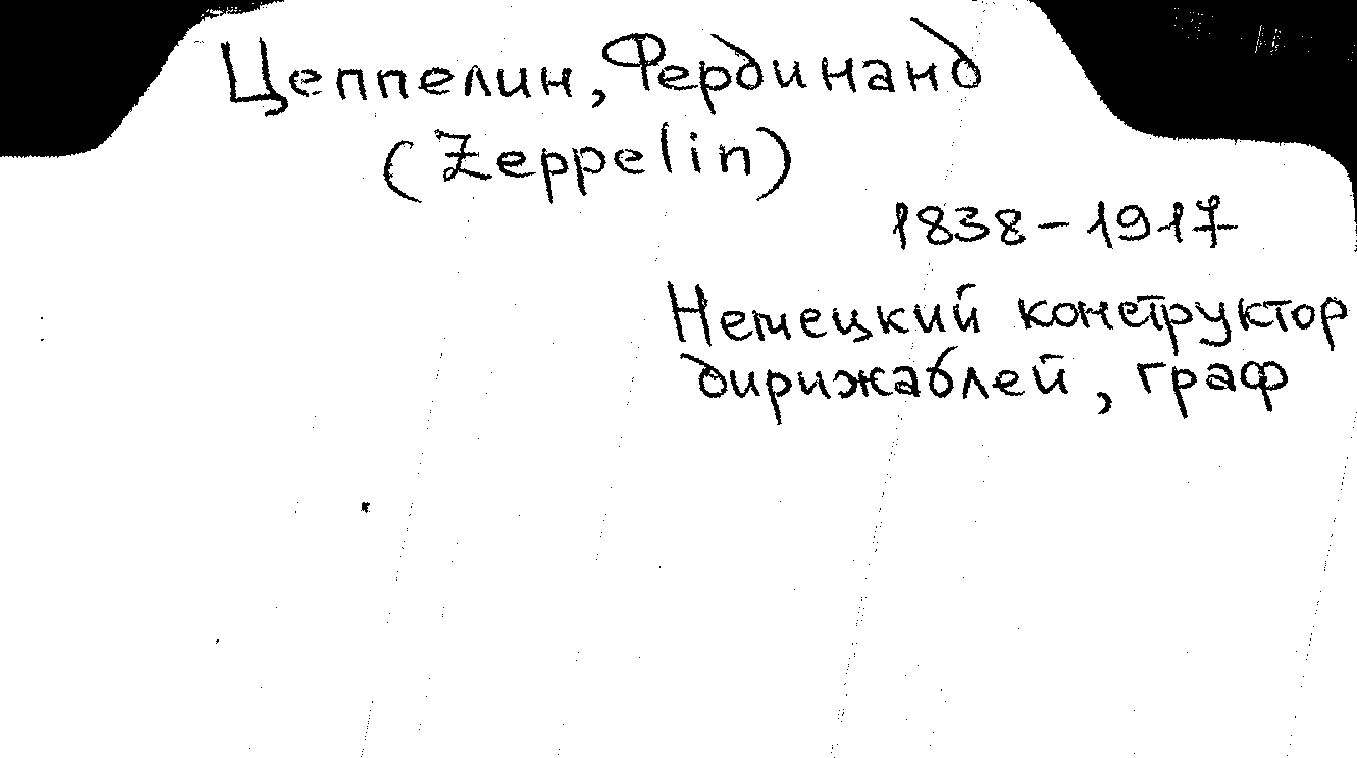 Цеппелин, Фердинанд
(Zeppelin)
1838-1917
Немецкий конструктор
дирижаблей, граф